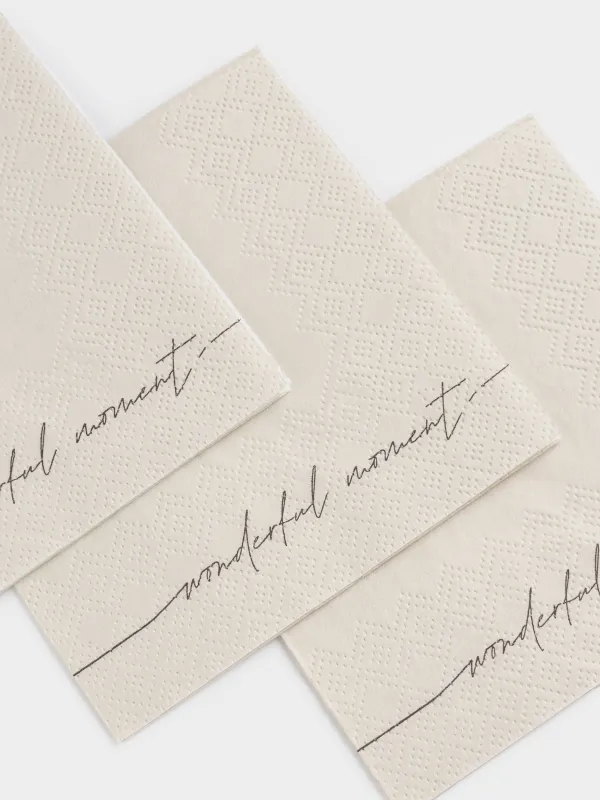 rful moment
wonderful moment
wonderful